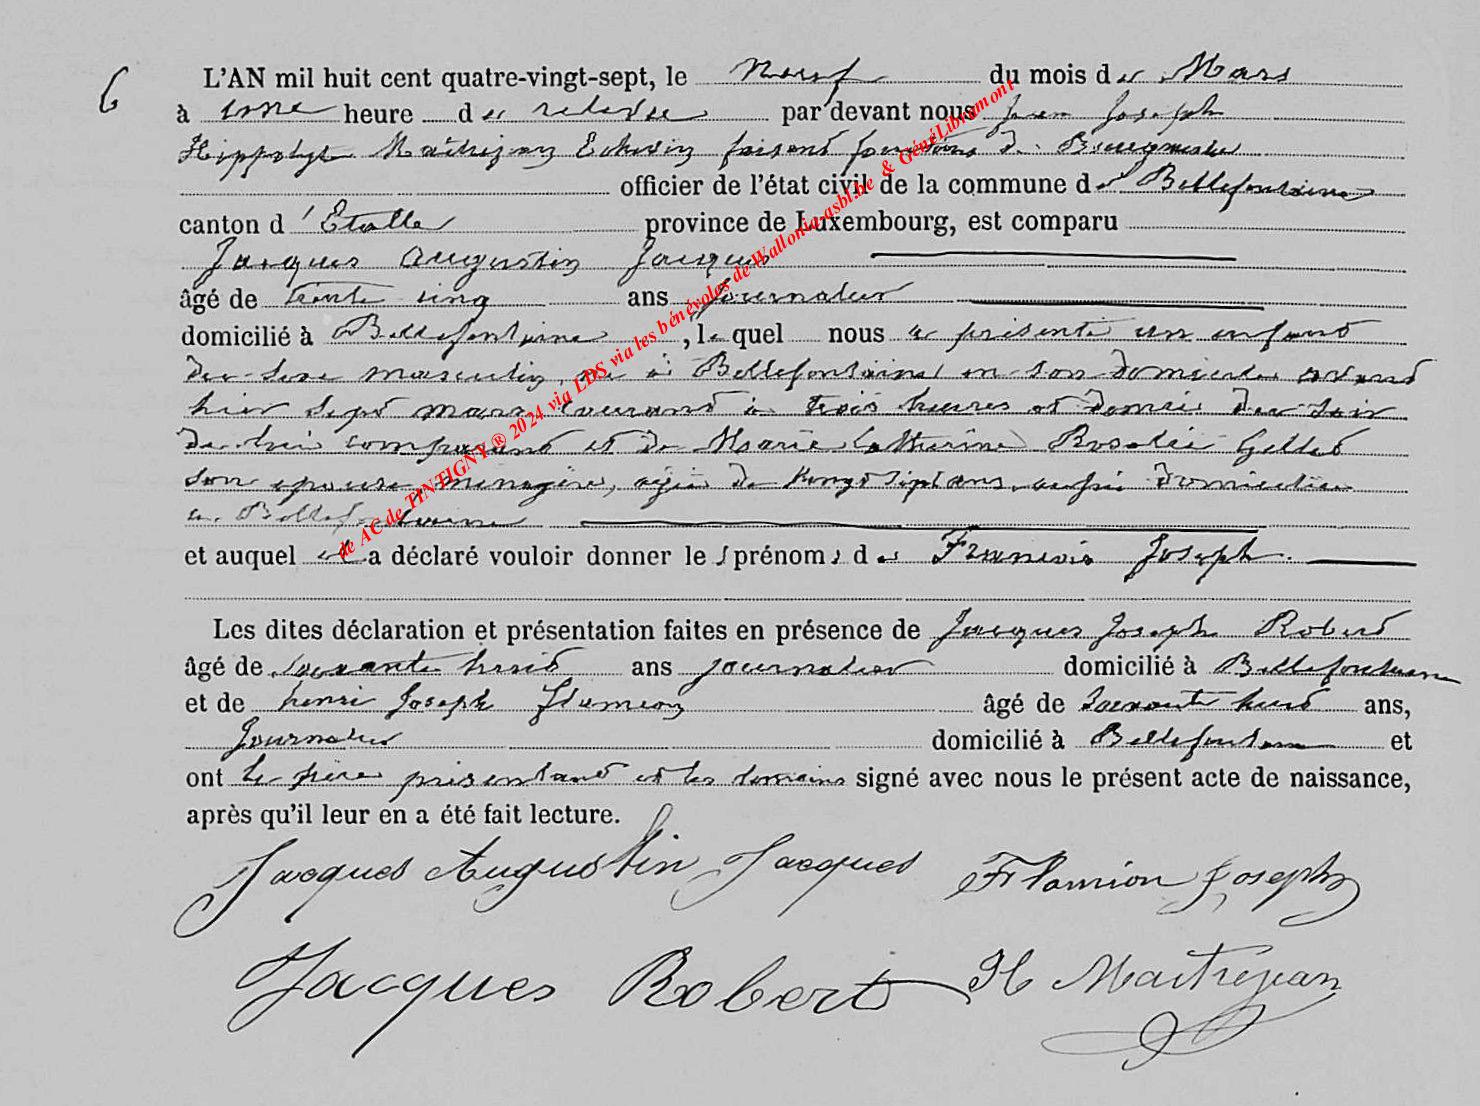 6
L'AN mil huit cent quatre-vingt-sept, le neuf du mois de Mars
à une heure de relevée par devant nous Jean Joseph
Hippolyte Maitrejean Echevin faisant fonctions de Bourgmestre
officier de l'état civil de la commune de Bellefontaine
canton d'Etalle province de Luxembourg, est comparu
Jacques Augustin Jacques
âgé de trente cinq ans journalier
domicilié à Bellefontaine, lequel nous a présenté un enfant
du sexe masculin, né à Bellefontaine en son domicile avant
hier sept mars courant à trois heures et demie du soir
de lui comparant et de Marie Catherine Rosalie Gillet
son épouse, ménagère, agée de vingt sept ans, aussi domiciliée
à Bellefontaine
et auquel il a déclaré vouloir donner les prénoms de François Joseph.
Les dites déclaration et présentation faites en présence de Jacques Joseph Robert
âgé de soixante huit ans journalier domicilié à Bellefontaine
et de henri Joseph Flamion âgé de soixante huit ans,
Journalier domicilié à Bellefontaine et
ont le père présentant et les temoins signé avec nous le présent acte de naissance,
après qu'il leur en a été fait lecture.
Jacques Augustin Jacques Flamion Joseph
Jacques Robert H Maitrejean
de AC de TINTIGNY ® 2024 via LDS via les bénévoles de Wallonia-asbl.be & GénéLibramont